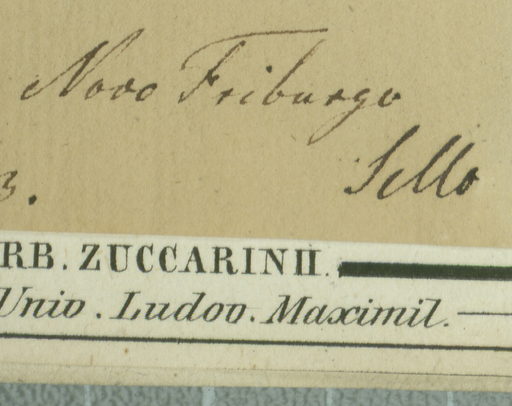 Novo Friburgo
Sello
3.
RB. ZUCCARINII.
Univ. Ludov. Maximil.